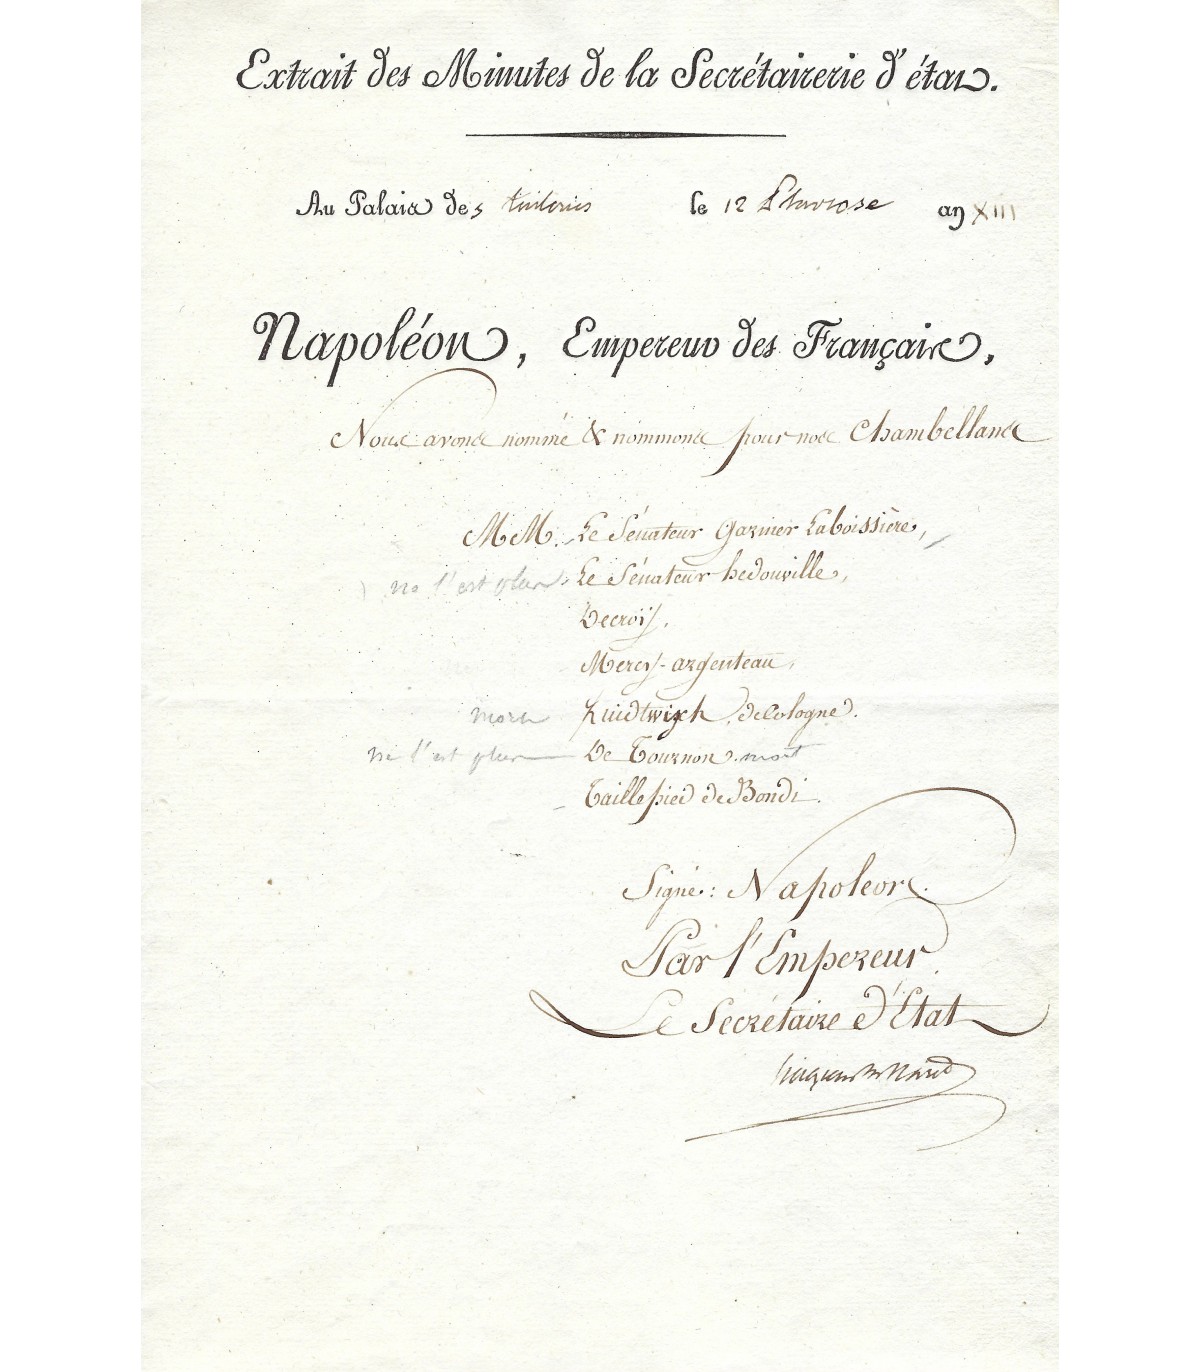 Extrait des Minutes de la Secrétairerie d'état.
Au Palais des tuileries le 12 Pluviose an XIII
Napoléon, Empereur des Français,
Nous avons nommé & nommons pour nos Chambellans
MM. Le Sénateur Garnier Laboissière,
ne l'est plus Le Sénateur hedouville,
Decroÿ.
Mercy-argenteau,
mort de Cologne.
ne l'est plus De Tournon. mort
Taillepied de Bondi.
Signé: Napoleon.
Par l'Empereur.
Le Secrétaire d'Etat
hugues B. Maret